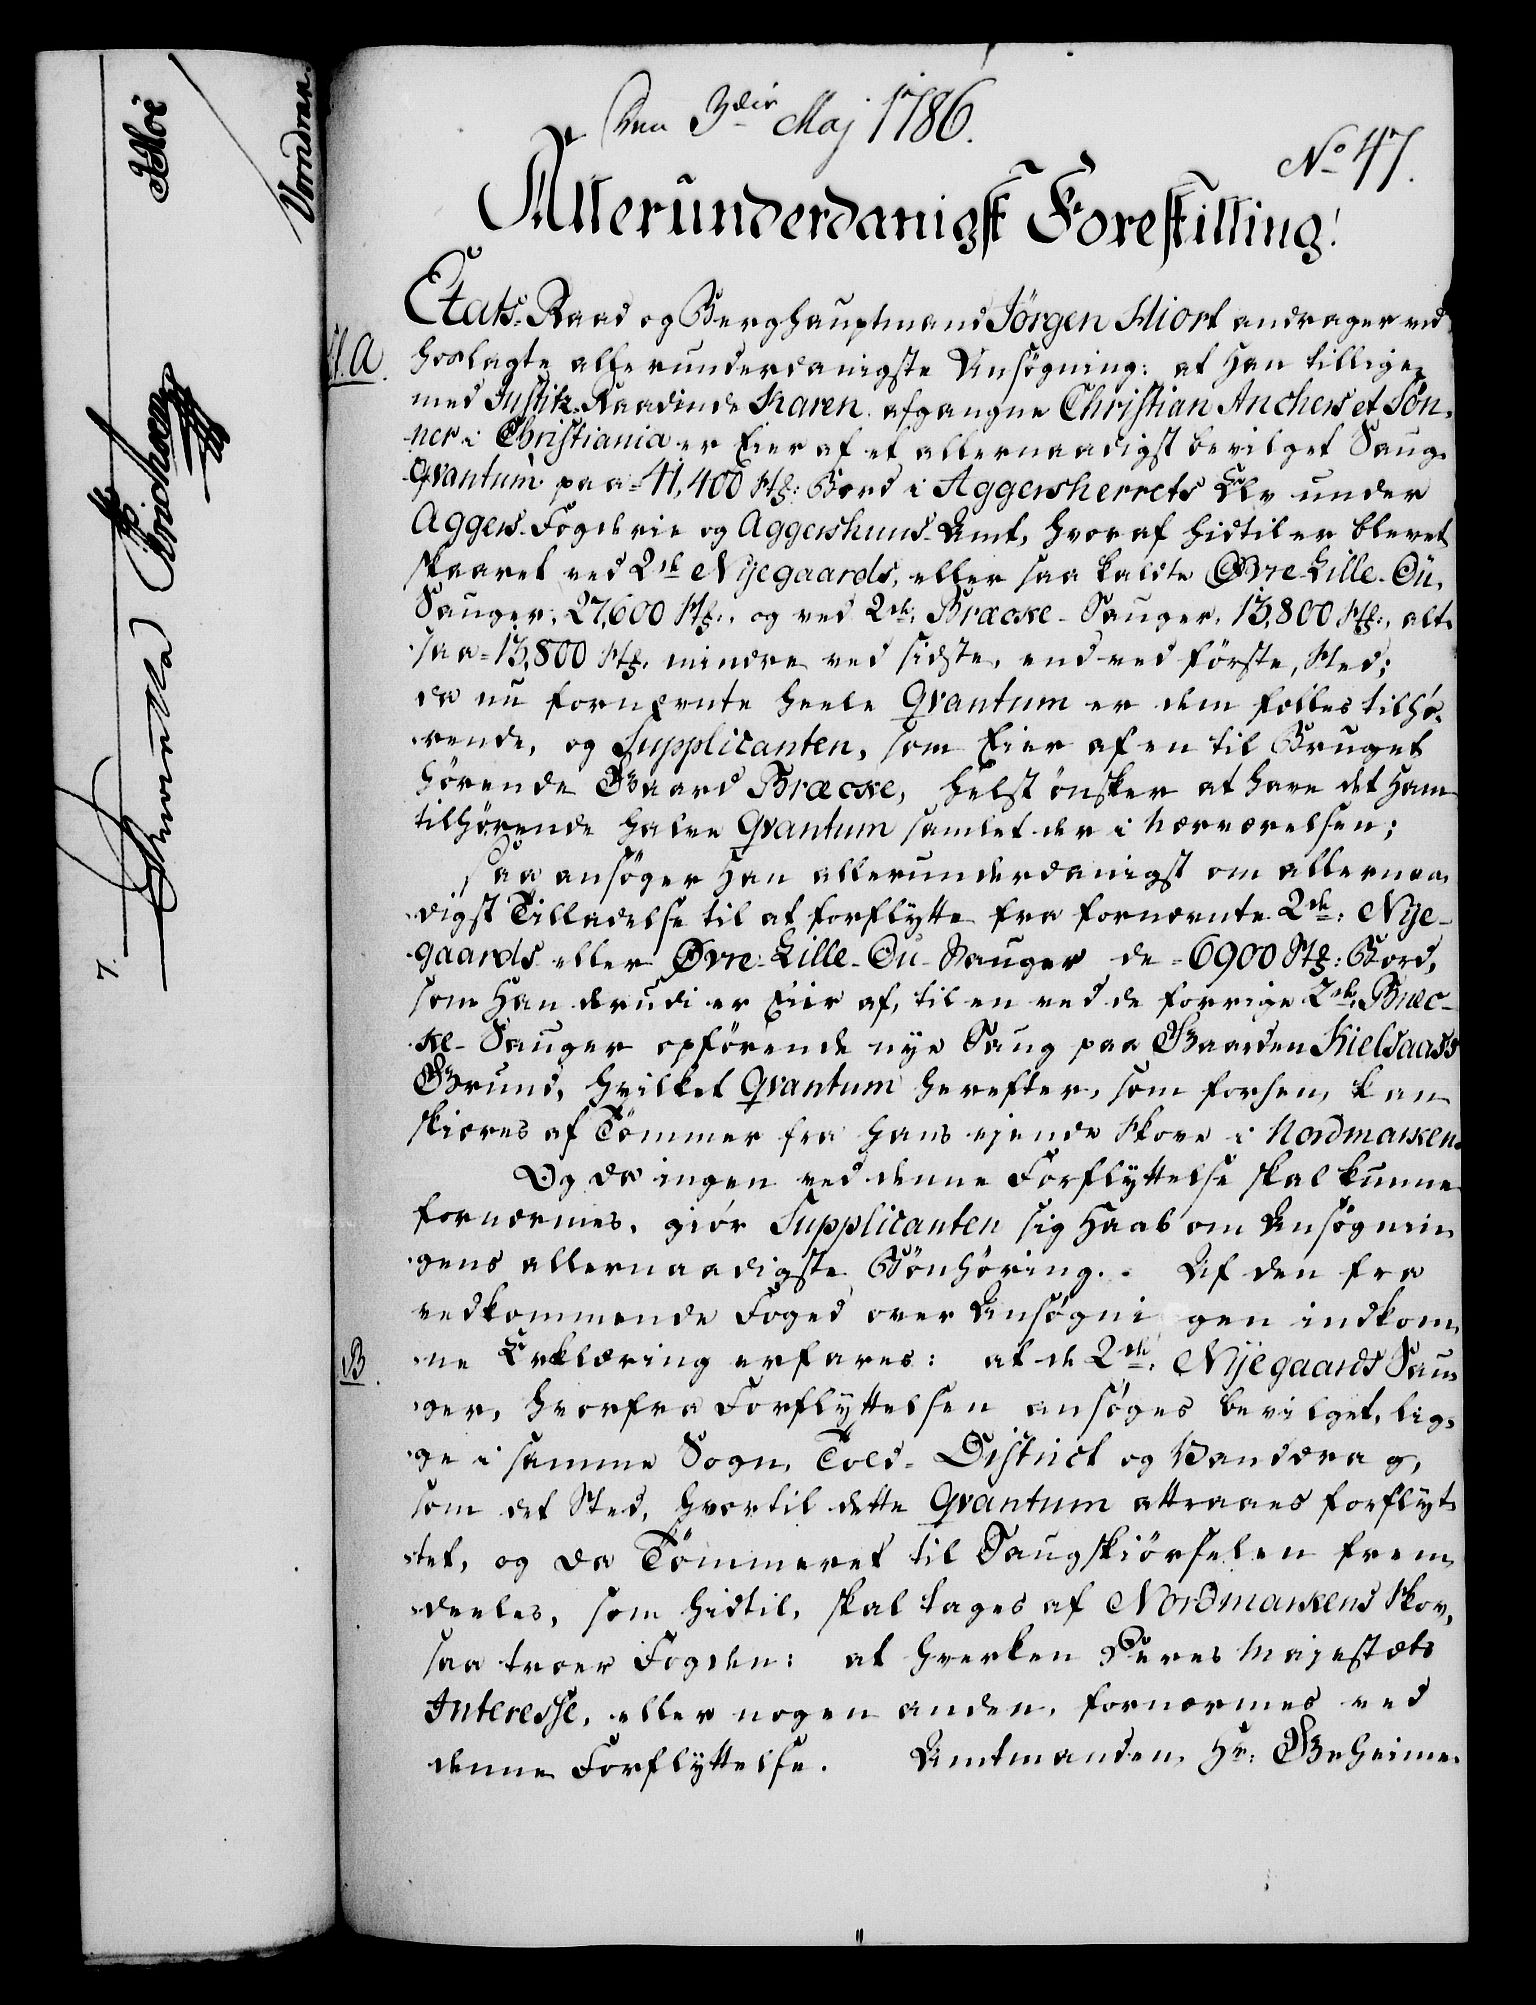 Den 3die Maj 1786.
No 47.
Allerunderdanigst Forestilling!
Etats-Raad og Berghauptmand Jörgen Hiort andrager ved
A. hoslagte allerunderdanigste Ansögning: at Han tillige
med Justitz-Raadinde Karen afgangne Christian Anchers et Søn-
ner i Christiania er Eier af et allernaadigst bevilget Saug-
Qvantum paa 41,400 St: Bord i Aggersherrets Elv under
Aggers-Fogderie og Aggershuus-Amt, hvoraf hidtil er blevet
skaaret ved 2de Nyegaards, eller saa kaldte Øvre-Lille-Ou-
Sauger, 27,600 St:, og ved 2de Bræcke-Sauger, 13,800 St:, alt-
saa 13,800 St: mindre ved sidste, end ved förste, Sted;
da nu fornævnte heele Qvantum er dem fælles tilhö-
rende, og Supplicanten, som Eier af en til Bruget
hörende Gaard Bræcke, helst önsker at have det Ham
tilhörende halve Qvantum samlet der i Nærværelsen;
Saa ansöger Han allerunderdanigst om allernaa-
digst Tilladelse til at forflytte fra fornævnte 2de: Nye-
gaards eller Øvre-Lille-Ou-Sauger de 6900 St: Bord,
som Han derudi er Eier af, til en ved de forrige 2de Bræc-
ke-Sauger opförende nye Saug paa Gaarden Kielsaas's
Grund, hvilket Qvantum herefter, som forhen, kan
skieres af Tömmer fra Hans ejende Skove i Nordmarken.
Og da ingen ved denne Forflyttelse skal kunne
fornærmes, giör Supplicanten sig Haab om Ansögnin-
gens allernaadigste Bönhöring. Af den fra
vedkommende Foged over Ansögningen indkom-
B. ne Erklæring erfares: at de 2de, Nyegaards Sau-
ger, hvorfra Forflyttelsen ansöges bevilget, lig-
ge i samme Sogn, Told-District og Vanddrag,
som det Sted, hvortil dette Qvantum attraaes forflyt-
tet, og da Tömmeret til Saugskiörselen frem-
deeles, som hidtil, skal tages af Nordmarkens Skov,
saa troer Fogden: at hverken Deres Majestæts
Interesse, eller nogen anden, fornærmes ved
denne Forflyttelse. Amtmanden, Hr: Geheime-
Vondran.